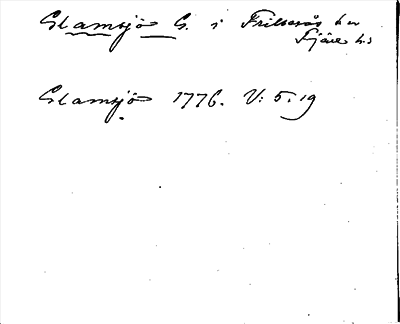 Glamsjö G. i Frillesås sn
Fjäre hd
Glamsjö 1776. V: 5. 19